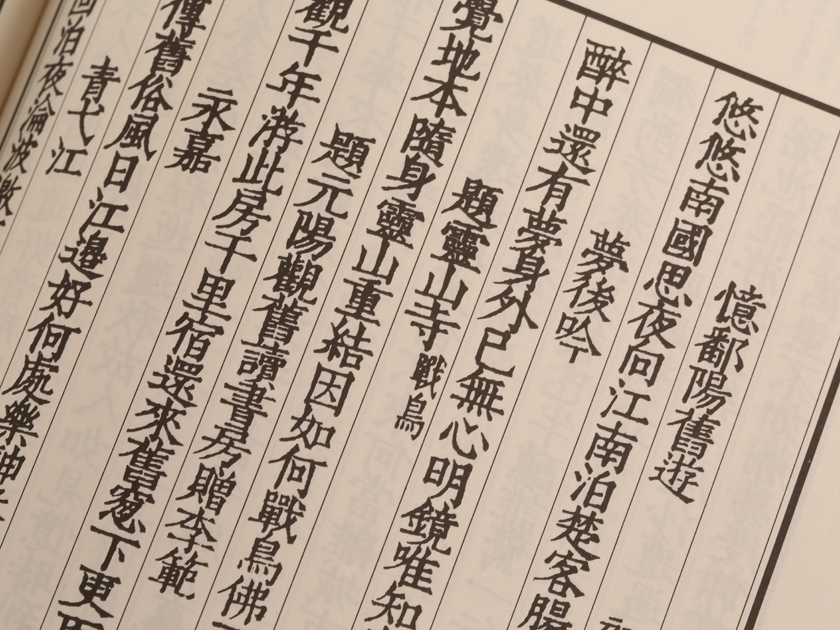 憶鄱陽舊遊
悠悠南國思夜向江南泊楚客腸
夢後吟
醉中還有夢身外已無心明鏡唯知
題靈山寺 戰鳥
覺地本隨身靈山重結因如何戰鳥佛
題元陽觀舊讀書房贈李範
觀千年游此房千里宿還來舊窓下更
永嘉
傳舊俗風日江邉好何處樂神
青弋江
泊夜淪波